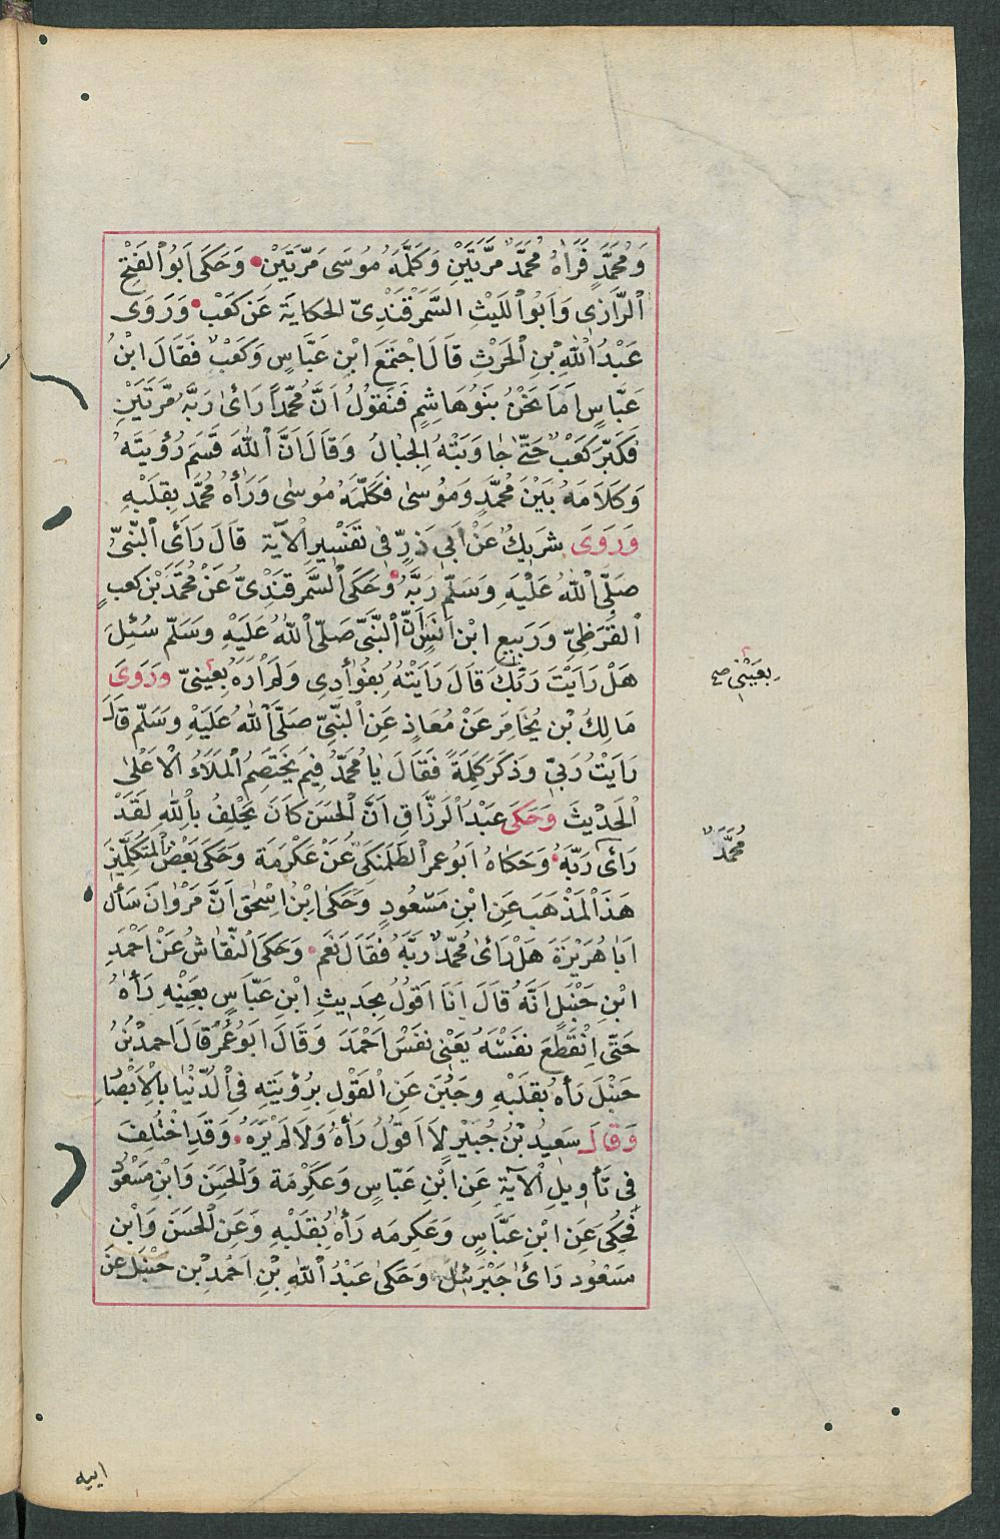 وَمُحَمَّدٍ فَرَاٰهُ مُحَمَّدٌ مَرَّتَيْنِ وَكَلَّمَهُ مُوسَى مَرَّتَيْنِ وَحَكَى اَبُو الْفَتْحِ
الرَّازِى وَاَبُو اللَّيْثِ السَّمَرْقَنْدِىّ الحكايَةَ عَنْ كَعْبٍ وَرَوَى
عَبْدُ اللّٰهِ بْنِ الْحَرْثِ قَالَ اجْتَمَعَ ابْنِ عَبَّاسٍ وَكَعْبٌ فَقَالَ ابْنُ
عَبَّاسٍ اَمَا نَحْنُ بَنُوهَاشِمٍ فَنَقُوْلُ اَنَّ مُحَمَّداً رَائ رَبَّهُ مَرَّتَيْنِ
فَكَبَّرَ كَعْبٌ حَتّٰى جَاوَبَتْهُ الْجِبَالُ وَقَالَ اِنَّ اللّٰهَ قَسَمَ رُؤْيَتَهُ
وَكَلَامَهُ بَيْنَ مُحَمَّدٍ وَمُوسٰى فَكَلَّمَهُ مُوسٰى وَرَأٰهُ مُحَمَّد بِقَلْبِهِ
وَرَوَى شَرِيكٌ عَنْ اَبِى ذَرٍّ فِى تَفْسِيرِ الْآيَةِ قَالَ رَأَى النَّبِىُّ
صَلَّى اللّٰهُ عَلَيْهِ وَسَلَّمَ رَبَّهُ وَحَكَى السَّمَرقَنْدِىُّ عَنْ مُحَمَّدَ بْن كَعبٍ
الْقُرَظِىِّ وَرَبِيعِ ابْن اَنَسٍ اَنَّ النَّبِىَّ صَلَّى اللّٰهُ عَلَيْهِ وَسَلَّم سُئِلَ
هَلْ رَاَيْتَ رَبَّكَ قَالَ رَاَيْتُهُ بِفُوَأدِى وَلَمْ اَرَهُ بِعَينىّ وَرَوَى
مَالِكُ بْن يُخَامِرَ عَنْ مُعَاذٍ عَنِ النَّبِىِّ صَلَّى اللّٰهُ عَلَيْهِ وَسَلَّم قَالَ
رَاَيْتُ رَبِّى وَذَكَرَ كَلِمَةً فَقَالَ يَا مُحَمَّدُ فِيمَ يَخْتَصِمُ الْمَلَاءُ الْاَعْلٰى
الْحَدِيْثَ وَحَكَى عَبْدُ الرَزَّاقِ اَنَّ الْحَسَن كَاَنَ يَحْلِفُ بِاللّٰهِ لَقَدْ
رَائ رَبَّهُ وَحَكَاهُ اَبُو عمر الطَلَمَنكِى عَنْ عَكْرِمَة وَحَكَى بَعْضُ الْمُتَكَلِّمِيْنَ
هَذَ الْمَذْهَبَ عَنِ ابْنِ مَسْعُودٍ وَحَكَى ابْنُ اِسْحٰق اَنَّ مَرْوَانَ سَأَلَ
اَبَا هُرَيْرَةَ هَلْ رَائ مُحَمَّدٌ رَبَّهُ فَقَالَ نَعَم وَحَكَى النَّقَاشُ عَنْ اَحْمَدِ
ابْنِ حَنْبَلٍ اَنَّهُ قَالَ اَنَا اَقُولُ بِحَدِيثِ ابْنِ عَبَّاسٍ بِعَيْنِهِ رَأهُ
حَتّٰى اِنْقَطَعَ نَفْسُهُ يَعْنٖى نَفَسْ اَحْمَدَ وَقَالَ اَبُو عُمَر قَالَ احمدُ بْنُ
حَنْبَلَ رَأٰهُ بِقَلْبِهِ وَجَبُنَ عَنِ الْقَوْلِ بِرُؤْيَتِهِ فِى الدُّنْيَا بِالْاَبْصَارِ
وَقَالَ سَعِيدُ بْنُ جُبَيْرٍ لَا اَقُوْلُ رَأهُ وَلَا لَمْ يَرَهُ وَقَدِ اخْتُلِفَ
فِى تَأوِيلِ الْآيَةِ عَنِ ابْنِ عَبَّاسٍ وَعَكَرِمَة وَالْحَسَنِ وَابْنِ مَسْعُوْد
فَحُكِىَ عَنِ ابْنِ عَبَّاسٍ وَعَكِرمَه رَأهُ بِقَلْبِهِ وَعَنِ الْحَسَن وَابْن
مَسَعُود رَائ جَبْرَئِيلَ وَحَكٰى عَبْدُ اللّٰهِ بْنِ اَحْمَدَ بْن حَنْبَل عَنْ
بِعَيْنِى صح
مُحَمَّدٌ
ابيه